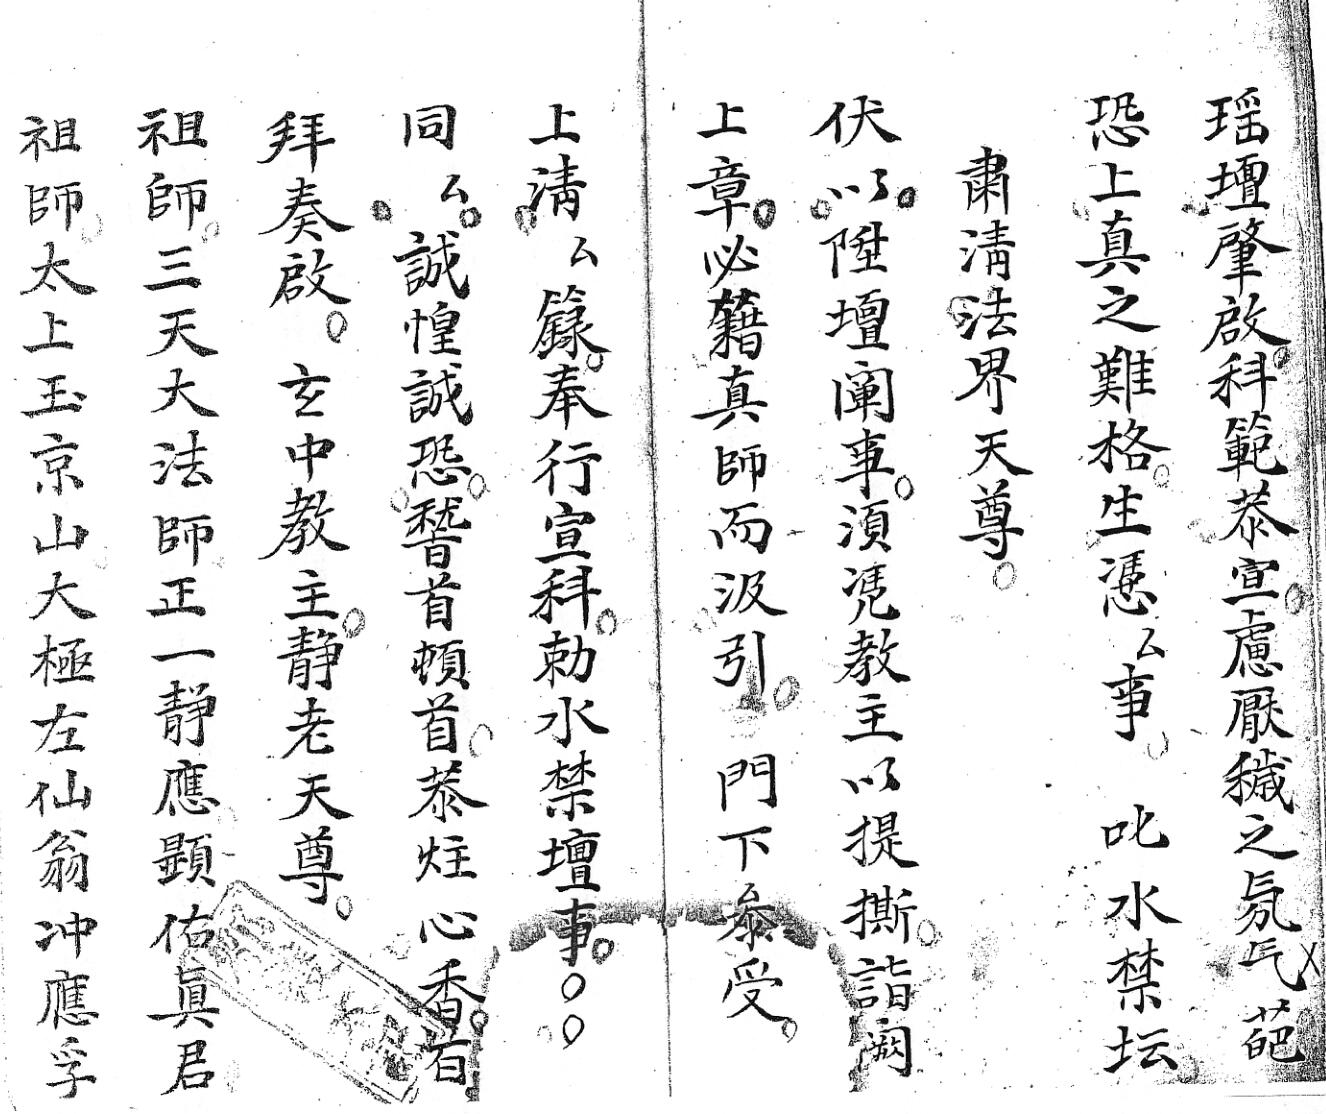 瑶壇肇啟科範恭宣慮厭穢之氛气葩
恐上真之難格生慿厶事 叱水禁坛
肅清法界天尊
伏以陞壇闡事須凴教主以提撕詣闕
上章必藉真師而汲引 門下叅受
上清厶籙奉行宣科勅水禁壇事
同厶誠惶誠恐稽首頓首恭炷心香百
拜奏啟 玄中教主靜老天尊
祖師三天大法師正一靜應顯佑真君
祖師太上玉京山大極左仙翁冲應孚